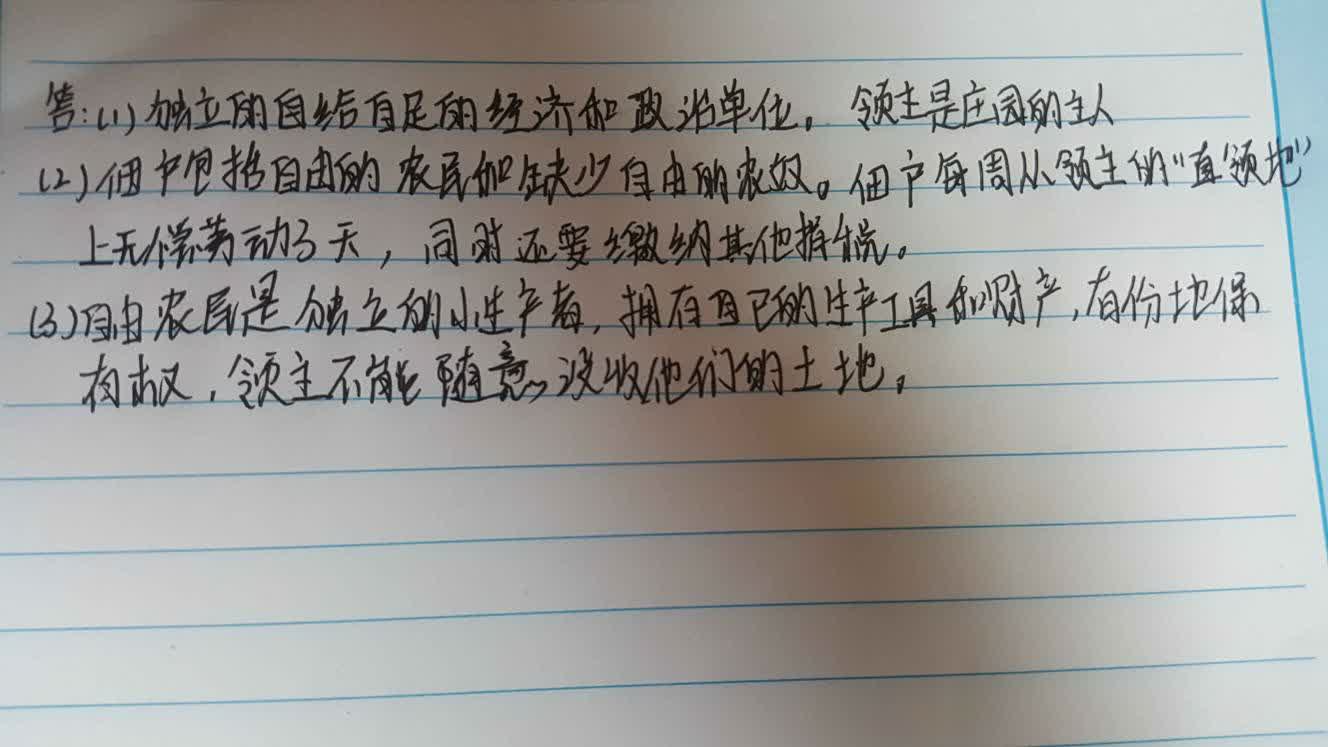 答:(1)独立的自给自足的经济和政治单位。领主是庄园的主人
(2)佃户包括自由的农民和缺少自由的农奴。佃户每周从领主的“直领地”
上无偿劳动3天,同时还要缴纳其他捐税。
(3)自由农民是独立的小生产者,拥有自己的生产工具和财产,有份地保
有权,领主不能随意没收他们的土地。